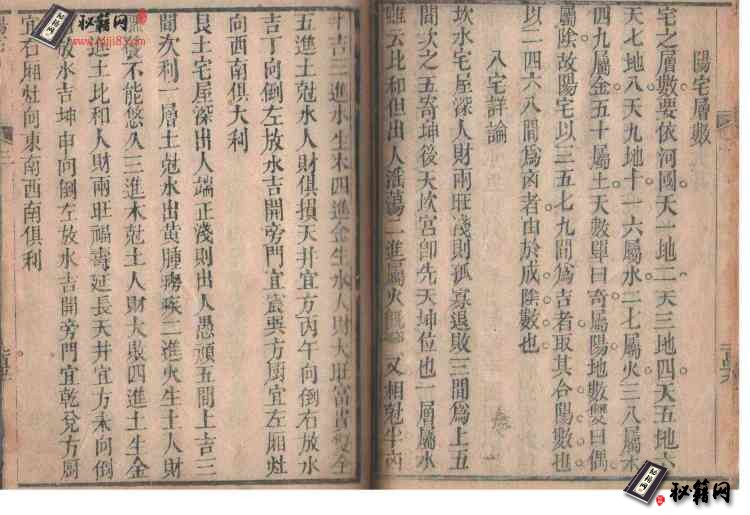 陽宅層數
宅之層數要依河圖天一地二天三地四天五地六
天七地八天九地十一六屬水二七屬火三八屬木
四九屬金五十屬土天數單曰奇屬陽地數雙曰偶
屬陰故陽宅以三五七九間爲吉者取其合陽數也
以二四六八間爲凶者由於成陰數也
八宅詳論
坎水宅屋深人財兩旺淺則孤寡退敗三間爲上五
間次之五寄坤後天坎宮卽先天坤位也一層屬水
雖云比和但出人淫蕩二進屬火 又相尅半凶
半吉三進水生木四進金生水人財大旺富貴
五進土尅水人財俱損天井宜方丙午向倒右放水
吉丁向倒左放水吉開旁門宜震巽方厨宜左厢灶
向西南俱大利
艮土宅屋深出人端正淺則出人愚頑五間上吉三
間次利一層土尅水出黃腫癆疾二進火生土人財
不能悠久三進木尅土人財大敗四進土生金
五進土比和人財兩旺福壽延長天井宜方未向倒
右放水吉坤申向倒左放水吉開旁門宜乾兌方厨
宜右厢灶向東南西南俱利
秘籍网
www.miji83.com
秘籍网